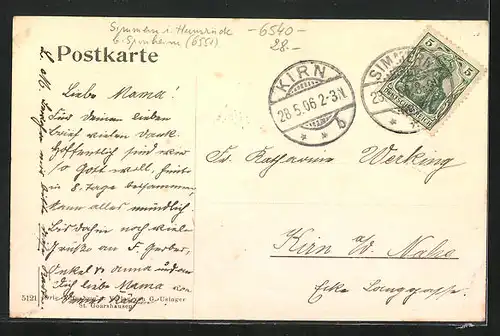 Simmern i. Hunsrück
b. Sponheim (6551)
-6540-
28.-
Postkarte
Liebe Mama!
Für deinen lieben
Brief vielen Dank.
Hoffentlich sind wir
so Gott will, heute
in 8 Tage beisammen,
kann alles mündlich
Bis dahin noch viele
Grüße an F. Gerber,
Onkel & Anna und an
Dich liebe Mama von
KIRN
28.5.06.2-3N.
* * b
SIMMERN
5 5
DEUTSCHES REICH
Fr. Katharina Werking
Kirn a/d. Nahe
Ecke Langgasse.
5121
St. Goarshausen